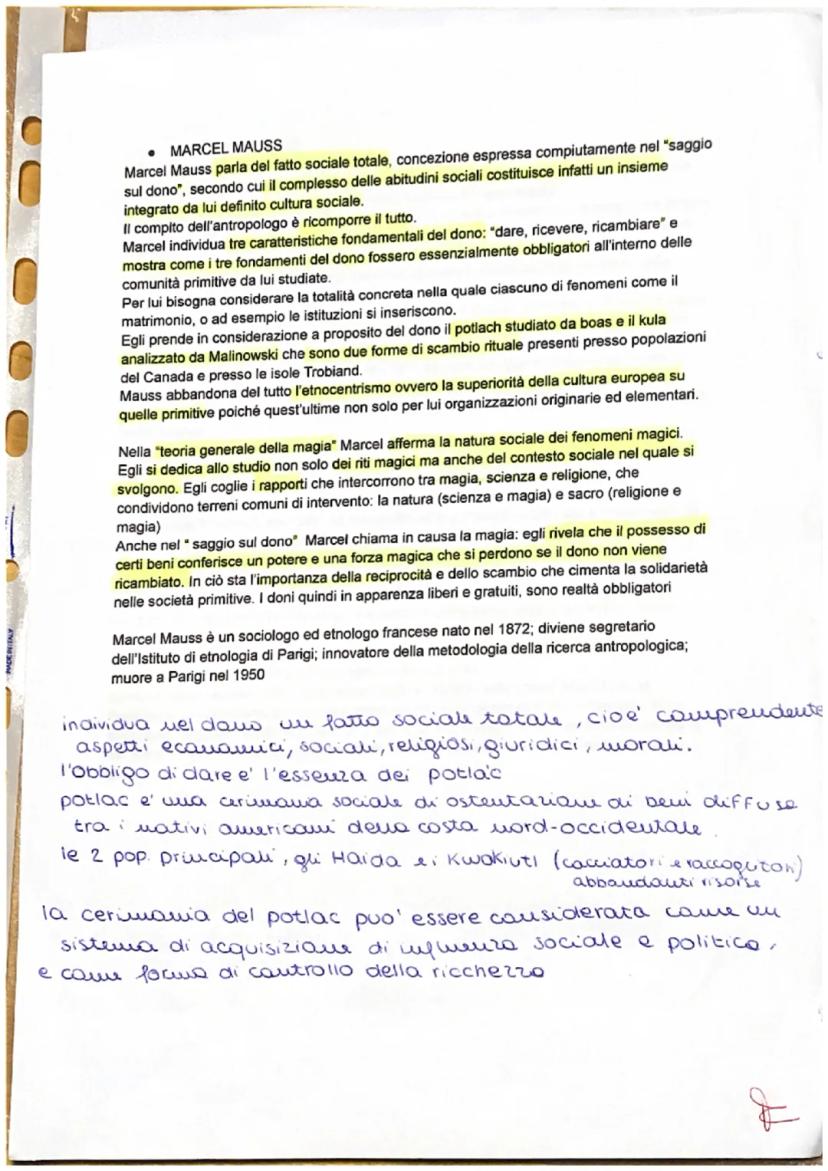 • MARCEL MAUSS
Marcel Mauss parla del fatto sociale totale, concezione espressa compiutamente nel "saggio
sul dono", secondo cui il complesso delle abitudini sociali costituisce infatti un insieme
integrato da lui definito cultura sociale.
Il compito dell'antropologo è ricomporre il tutto.
Marcel individua tre caratteristiche fondamentali del dono: "dare, ricevere, ricambiare" e
mostra come i tre fondamenti del dono fossero essenzialmente obbligatori all'interno delle
comunità primitive da lui studiate.
Per lui bisogna considerare la totalità concreta nella quale ciascuno di fenomeni come il
matrimonio, o ad esempio le istituzioni si inseriscono.
Egli prende in considerazione a proposito del dono il potlach studiato da boas e il kula
analizzato da Malinowski che sono due forme di scambio rituale presenti presso popolazioni
del Canada e presso le isole Trobiand.
Mauss abbandona del tutto l'etnocentrismo ovvero la superiorità della cultura europea su
quelle primitive poiché quest'ultime non solo per lui organizzazioni originarie ed elementari.
Nella "teoria generale della magia" Marcel afferma la natura sociale dei fenomeni magici.
Egli si dedica allo studio non solo dei riti magici ma anche del contesto sociale nel quale si
svolgono. Egli coglie i rapporti che intercorrono tra magia, scienza e religione, che
condividono terreni comuni di intervento: la natura (scienza e magia) e sacro (religione e
magia)
Anche nel " saggio sul dono" Marcel chiama in causa la magia: egli rivela che il possesso di
certi beni conferisce un potere e una forza magica che si perdono se il dono non viene
ricambiato. In ciò sta l'importanza della reciprocità e dello scambio che cimenta la solidarietà
nelle società primitive. I doni quindi in apparenza liberi e gratuiti, sono realtà obbligatori
Marcel Mauss è un sociologo ed etnologo francese nato nel 1872; diviene segretario
dell'Istituto di etnologia di Parigi; innovatore della metodologia della ricerca antropologica;
muore a Parigi nel 1950
individua nel dono un fatto sociale totale, cioe' comprendente
aspetti economici, sociali, religiosi, giuridici, morali.
l'obbligo di dare e' l'essenza dei potlac
potlac e' una cerimonia sociale di ostentazione di beni diffusa
tra i nativi americani della costa nord-occidentale.
le 2 pop. principali, gli Haida e i Kwakiutl (cacciatori e raccoglitori)
abbondanti risorse
la cerimonia del potlac puo' essere considerata come un
sistema di acquisizione di influenza sociale e politica,
e come forma di controllo della ricchezza
MADE IN ITALY